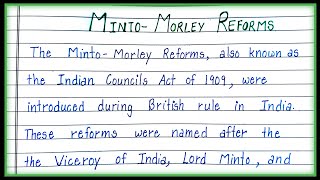 MINTO-MORLEY REFORMS
The Minto-Morley Reforms, also known as
the Indian Councils Act of 1909, were
introduced during British rule in India.
These reforms were named after the
the Viceroy of India, Lord Minto, and